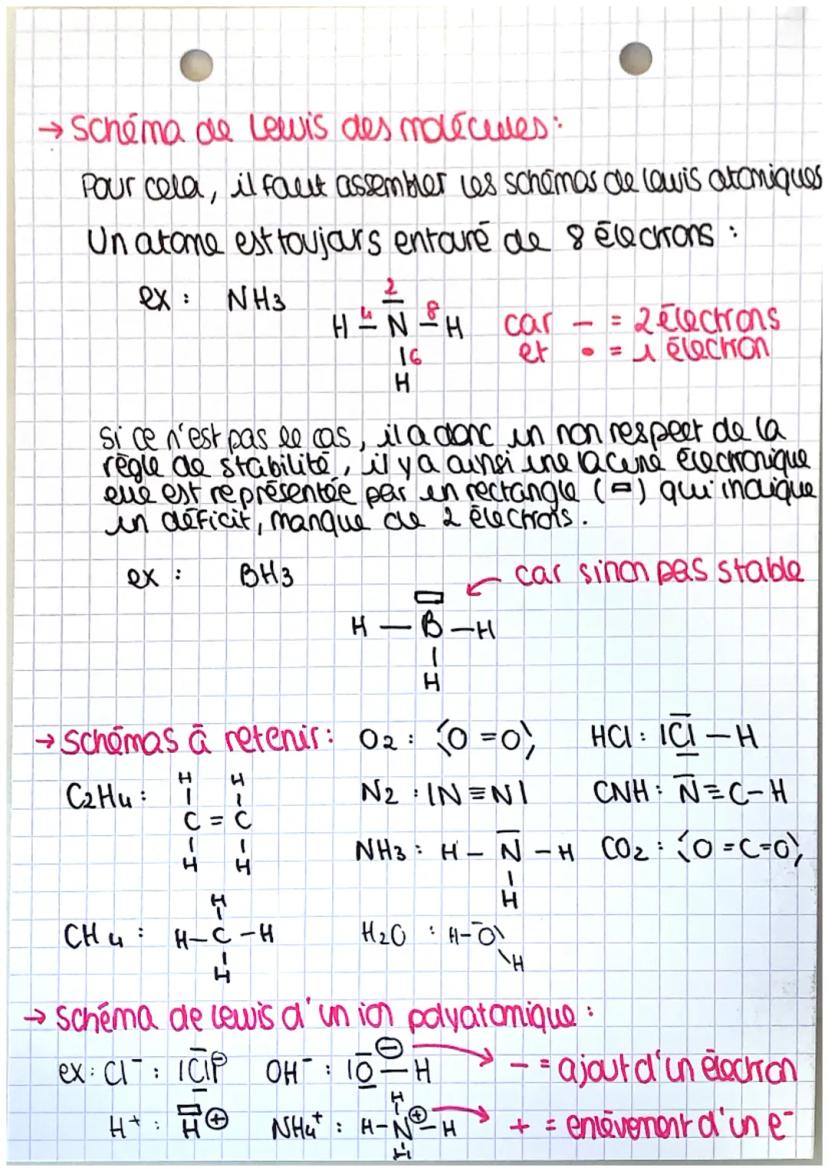 → Schéma de Lewis des molécules :
Pour cela, il faut assembler les schémas de lewis atomiques
Un atome est toujours entouré de 8 électrons :
ex : NH3
2
H 4 N 8 H
16
H
car — = 2 électrons
et • = 1 électron
Si ce n'est pas le cas, il a donc un non respect de la
règle de stabilité, il y a ainsi une lacune électronique
elle est représentée par un rectangle (▭) qui indique
un déficit, manque de 2 électrons.
ex : BH3
car sinon pas stable
H — B — H
|
H
→ Schémas à retenir : O2 : ⟨O = O⟩ HCl : |Cl — H
C2H4 : H H
C = C
H H
N2 : |N ≡ N| CNH : N ≡ C – H
NH3 : H – N – H CO2 : ⟨O = C = O⟩
H
CH4 : H
H – C – H
H
H2O : H – O
H
→ Schéma de lewis d'un ion polyatomique :
ex : Cl⁻ : |Cl|⊖ OH⁻ : |O⊖ – H → – = ajout d'un électron
H⁺ : H⊕ NH4⁺ : H – N⊕ – H → + = enlèvement d'un e⁻
H
H